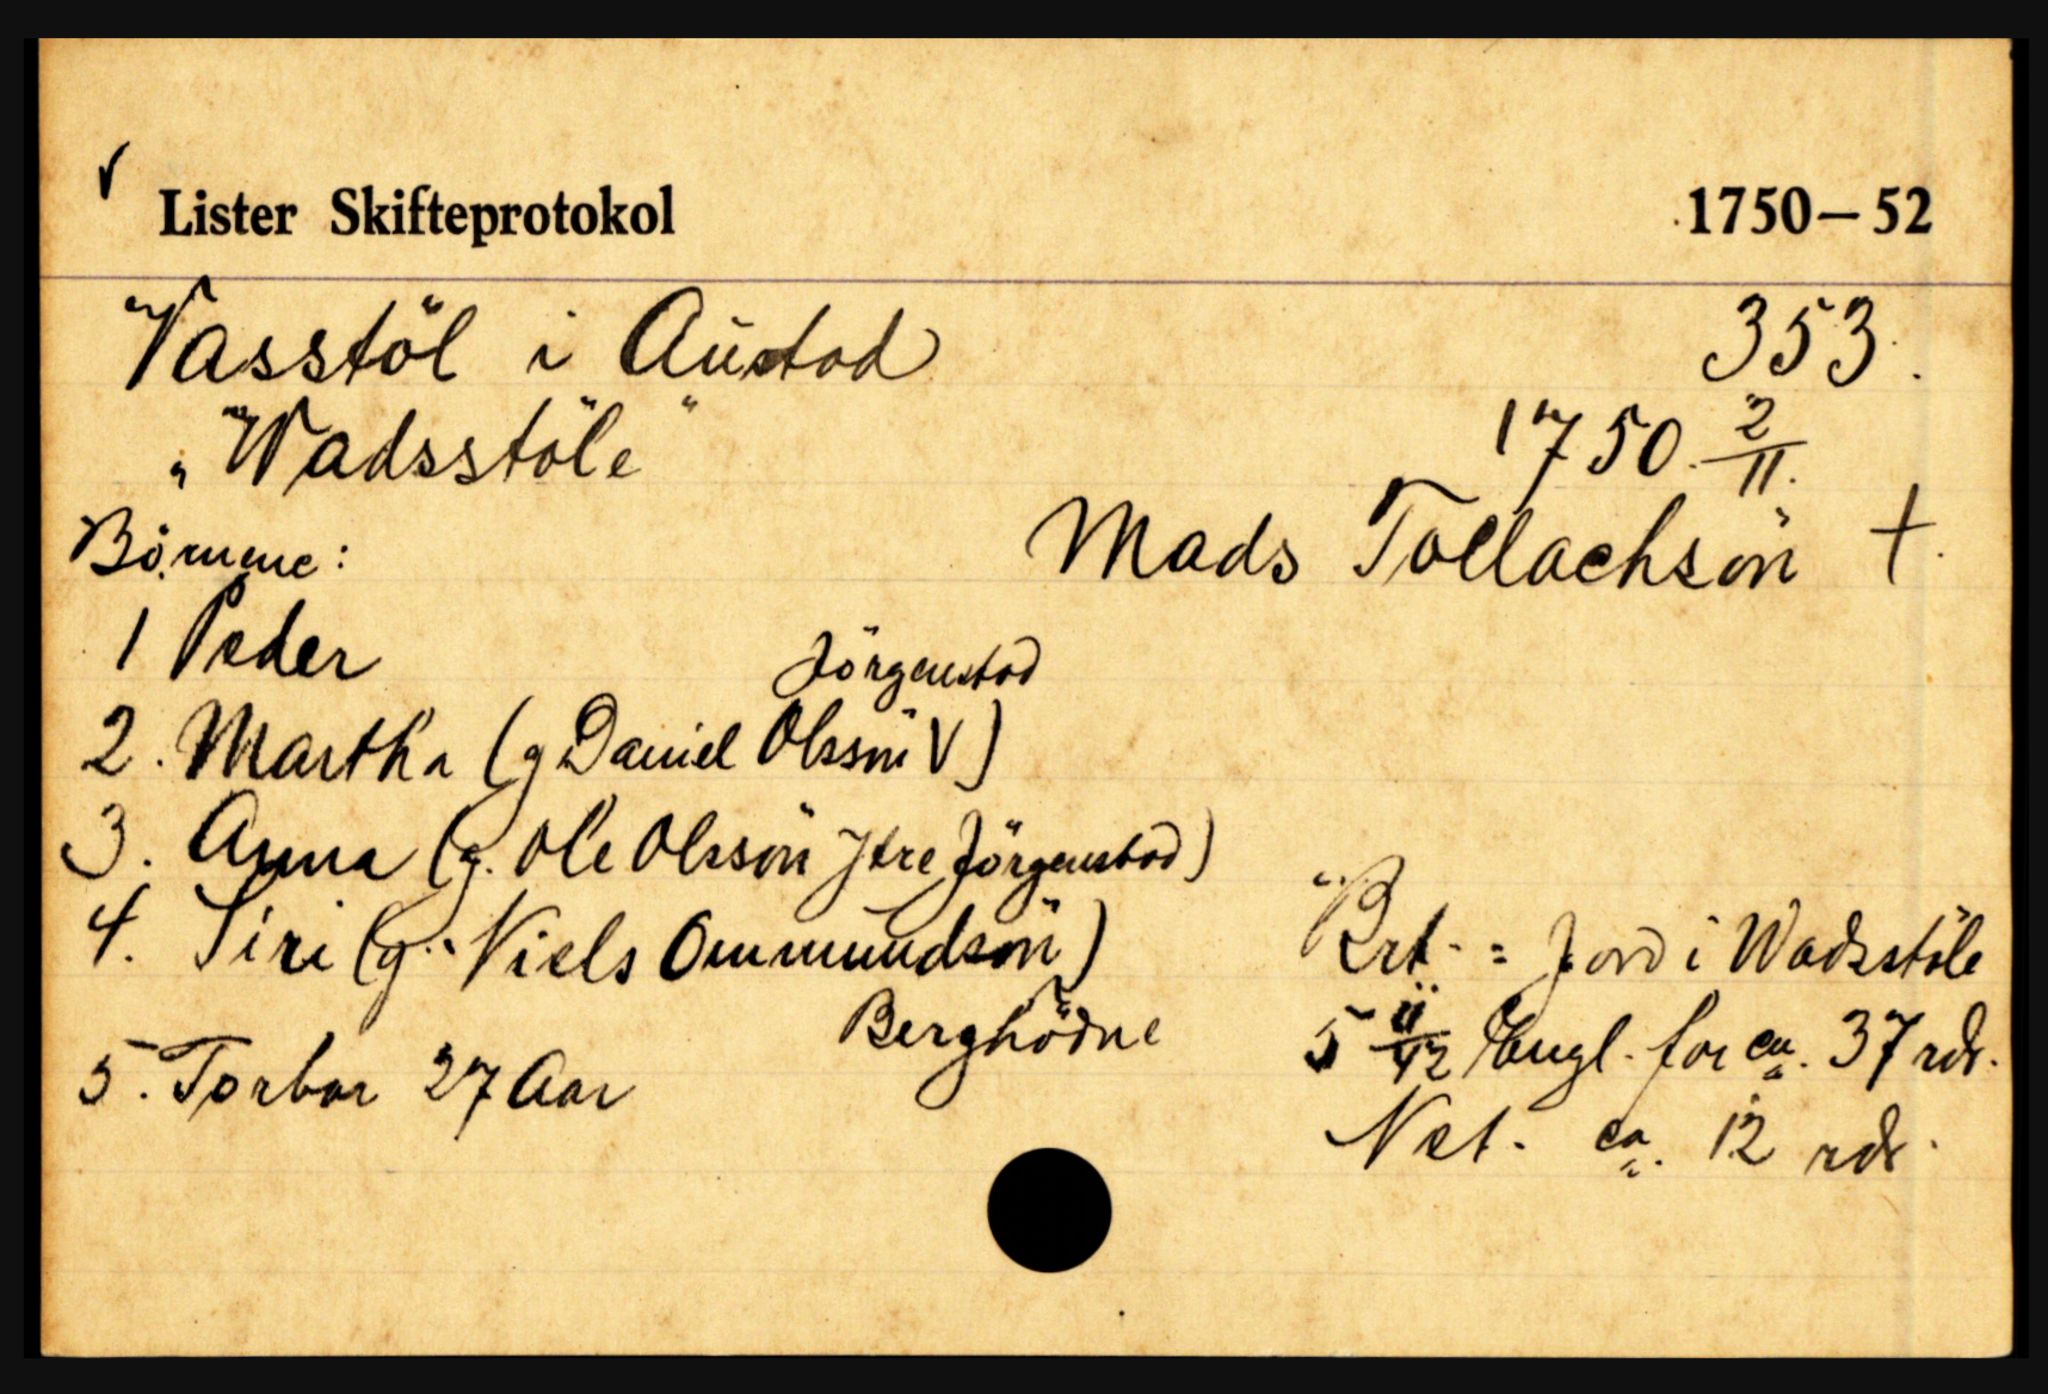 Lister Skifteprotokol 1750-52
Vasstöl i Austad 353.
„Wadsstöle" 1750. 2/11.
Mads Tollachsön †.
Börnene:
1 Peder
Jörgenstad
2. Martha (g Daniel Olssön V)
3. Anna (g. Ole Olssön Ytre Jörgenstad)
4. Siri (g. Niels Ommundsön)
Berghödne
5. Torbor 27 Aar
Brt. = Jord i Wadsstöle
5 11/12 Engl. for ca. 37 rdr.
Net. ca. 12 rdr.